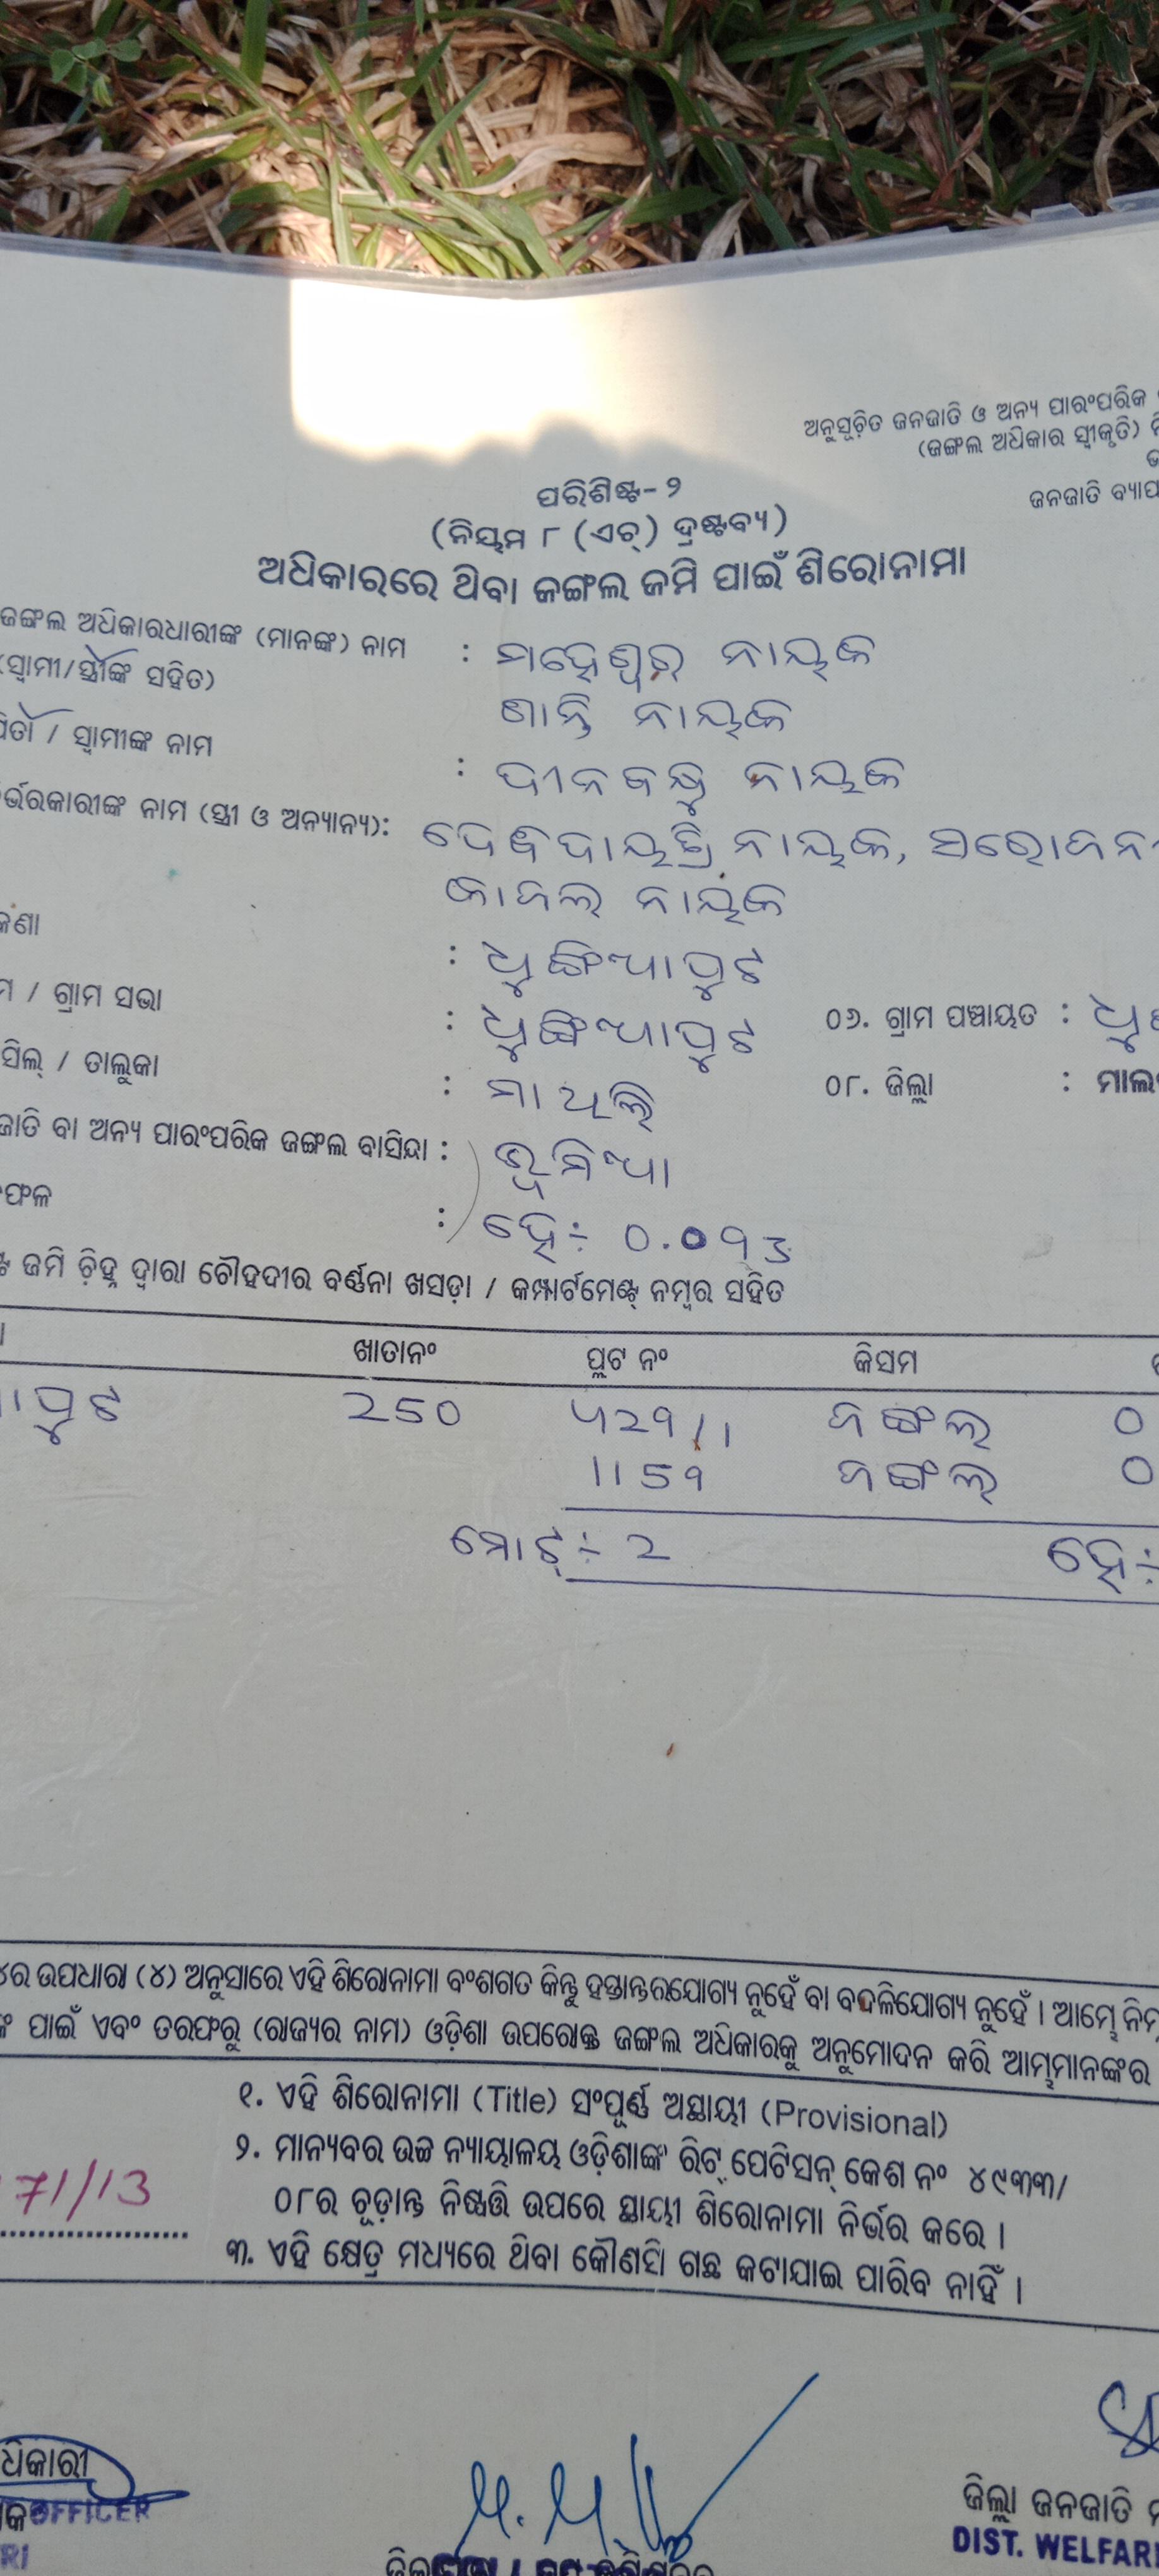 ଅନୁସୂଚିତ ଜନଜାତି ଓ ଅନ୍ୟ ପାରଂପରିକ
(ଜଙ୍ଗଲ ଅଧିକାର ସ୍ୱୀକୃତି)
ଜନଜାତି ବ୍ୟାପ
ପରିଶିଷ୍ଟ-୨
(ନିୟମ ୮ (ଏଚ୍) ଦ୍ରଷ୍ଟବ୍ୟ)
ଅଧିକାରରେ ଥିବା ଜଙ୍ଗଲ ଜମି ପାଇଁ ଶିରୋନାମା
ଜଙ୍ଗଲ ଅଧିକାରଧାରୀଙ୍କ (ମାନଙ୍କ) ନାମ : ମହେଶ୍ୱର ନାୟକ
(ସ୍ୱାମୀ/ସ୍ତ୍ରୀଙ୍କ ସହିତ) ଶାନ୍ତି ନାୟକ
ପିତା / ସ୍ୱାମୀଙ୍କ ନାମ : ଦୀନବନ୍ଧୁ ନାୟକ
ର୍ଭରକାରୀଙ୍କ ନାମ (ସ୍ତ୍ରୀ ଓ ଅନ୍ୟାନ୍ୟ): ନାୟକ,
କାଜଲ ନାୟକ
କଣା : ଧୁଙ୍ଗିଆପୁଟ
ମ / ଗ୍ରାମ ସଭା : ଧୁଙ୍ଗିଆପୁଟ ୦୬. ଗ୍ରାମ ପଞ୍ଚାୟତ : ଧୁ
ସିଲ୍ / ତାଲୁକା : ମାଥିଲି ୦୮. ଜିଲ୍ଲା : ମାଲ
ଜାତି ବା ଅନ୍ୟ ପାରଂପରିକ ଜଙ୍ଗଲ ବାସିନ୍ଦା : ଭୂମିଆ
ଫଳ : ହେ÷ 0.093
ଜମି ଚିହ୍ନ ଦ୍ୱାରା ଚୌହଦୀର ବର୍ଣ୍ଣନା ଖସଡ଼ା / କମ୍ପାର୍ଟମେଣ୍ଟ୍ ନମ୍ବର ସହିତ
ଖାତାନଂ ପ୍ଲଟ ନଂ କିସମ
ାପୁଟ 250 429/1 ଜଙ୍ଗଲ 0
1159 ଜଙ୍ଗଲ 0
ମୋଟ୍÷ 2 ହେ÷
୪ର ଉପଧାରା (୪) ଅନୁସାରେ ଏହି ଶିରୋନାମା ବଂଶଗତ କିନ୍ତୁ ହସ୍ତାନ୍ତରଯୋଗ୍ୟ ନୁହେଁ ବା ବଦଳିଯୋଗ୍ୟ ନୁହେଁ । ଆମ୍ଭେ ନିମ୍
ଙ୍କ ପାଇଁ ଏବଂ ତରଫରୁ (ରାଜ୍ୟର ନାମ) ଓଡ଼ିଶା ଉପରୋକ୍ତ ଜଙ୍ଗଲ ଅଧିକାରକୁ ଅନୁମୋଦନ କରି ଆମ୍ଭମାନଙ୍କର
୧. ଏହି ଶିରୋନାମା (Title) ସଂପୂର୍ଣ୍ଣ ଅସ୍ଥାୟୀ (Provisional)
୨. ମାନ୍ୟବର ଉଚ୍ଚ ନ୍ୟାୟାଳୟ ଓଡ଼ିଶାଙ୍କ ରିଟ୍ ପେଟିସନ୍ କେଶ ନଂ ୪୯୩୩/
71/13 ୦୮ର ଚୂଡ଼ାନ୍ତ ନିଷ୍ପତ୍ତି ଉପରେ ସ୍ଥାୟୀ ଶିରୋନାମା ନିର୍ଭର କରେ ।
୩. ଏହି କ୍ଷେତ୍ର ମଧ୍ୟରେ ଥିବା କୌଣସି ଗଛ କଟାଯାଇ ପାରିବ ନାହିଁ ।
ଧିକାରୀ
OFFICER
RI
ଜିଲ୍ଲା ଜନଜାତି
DIST. WELFAR